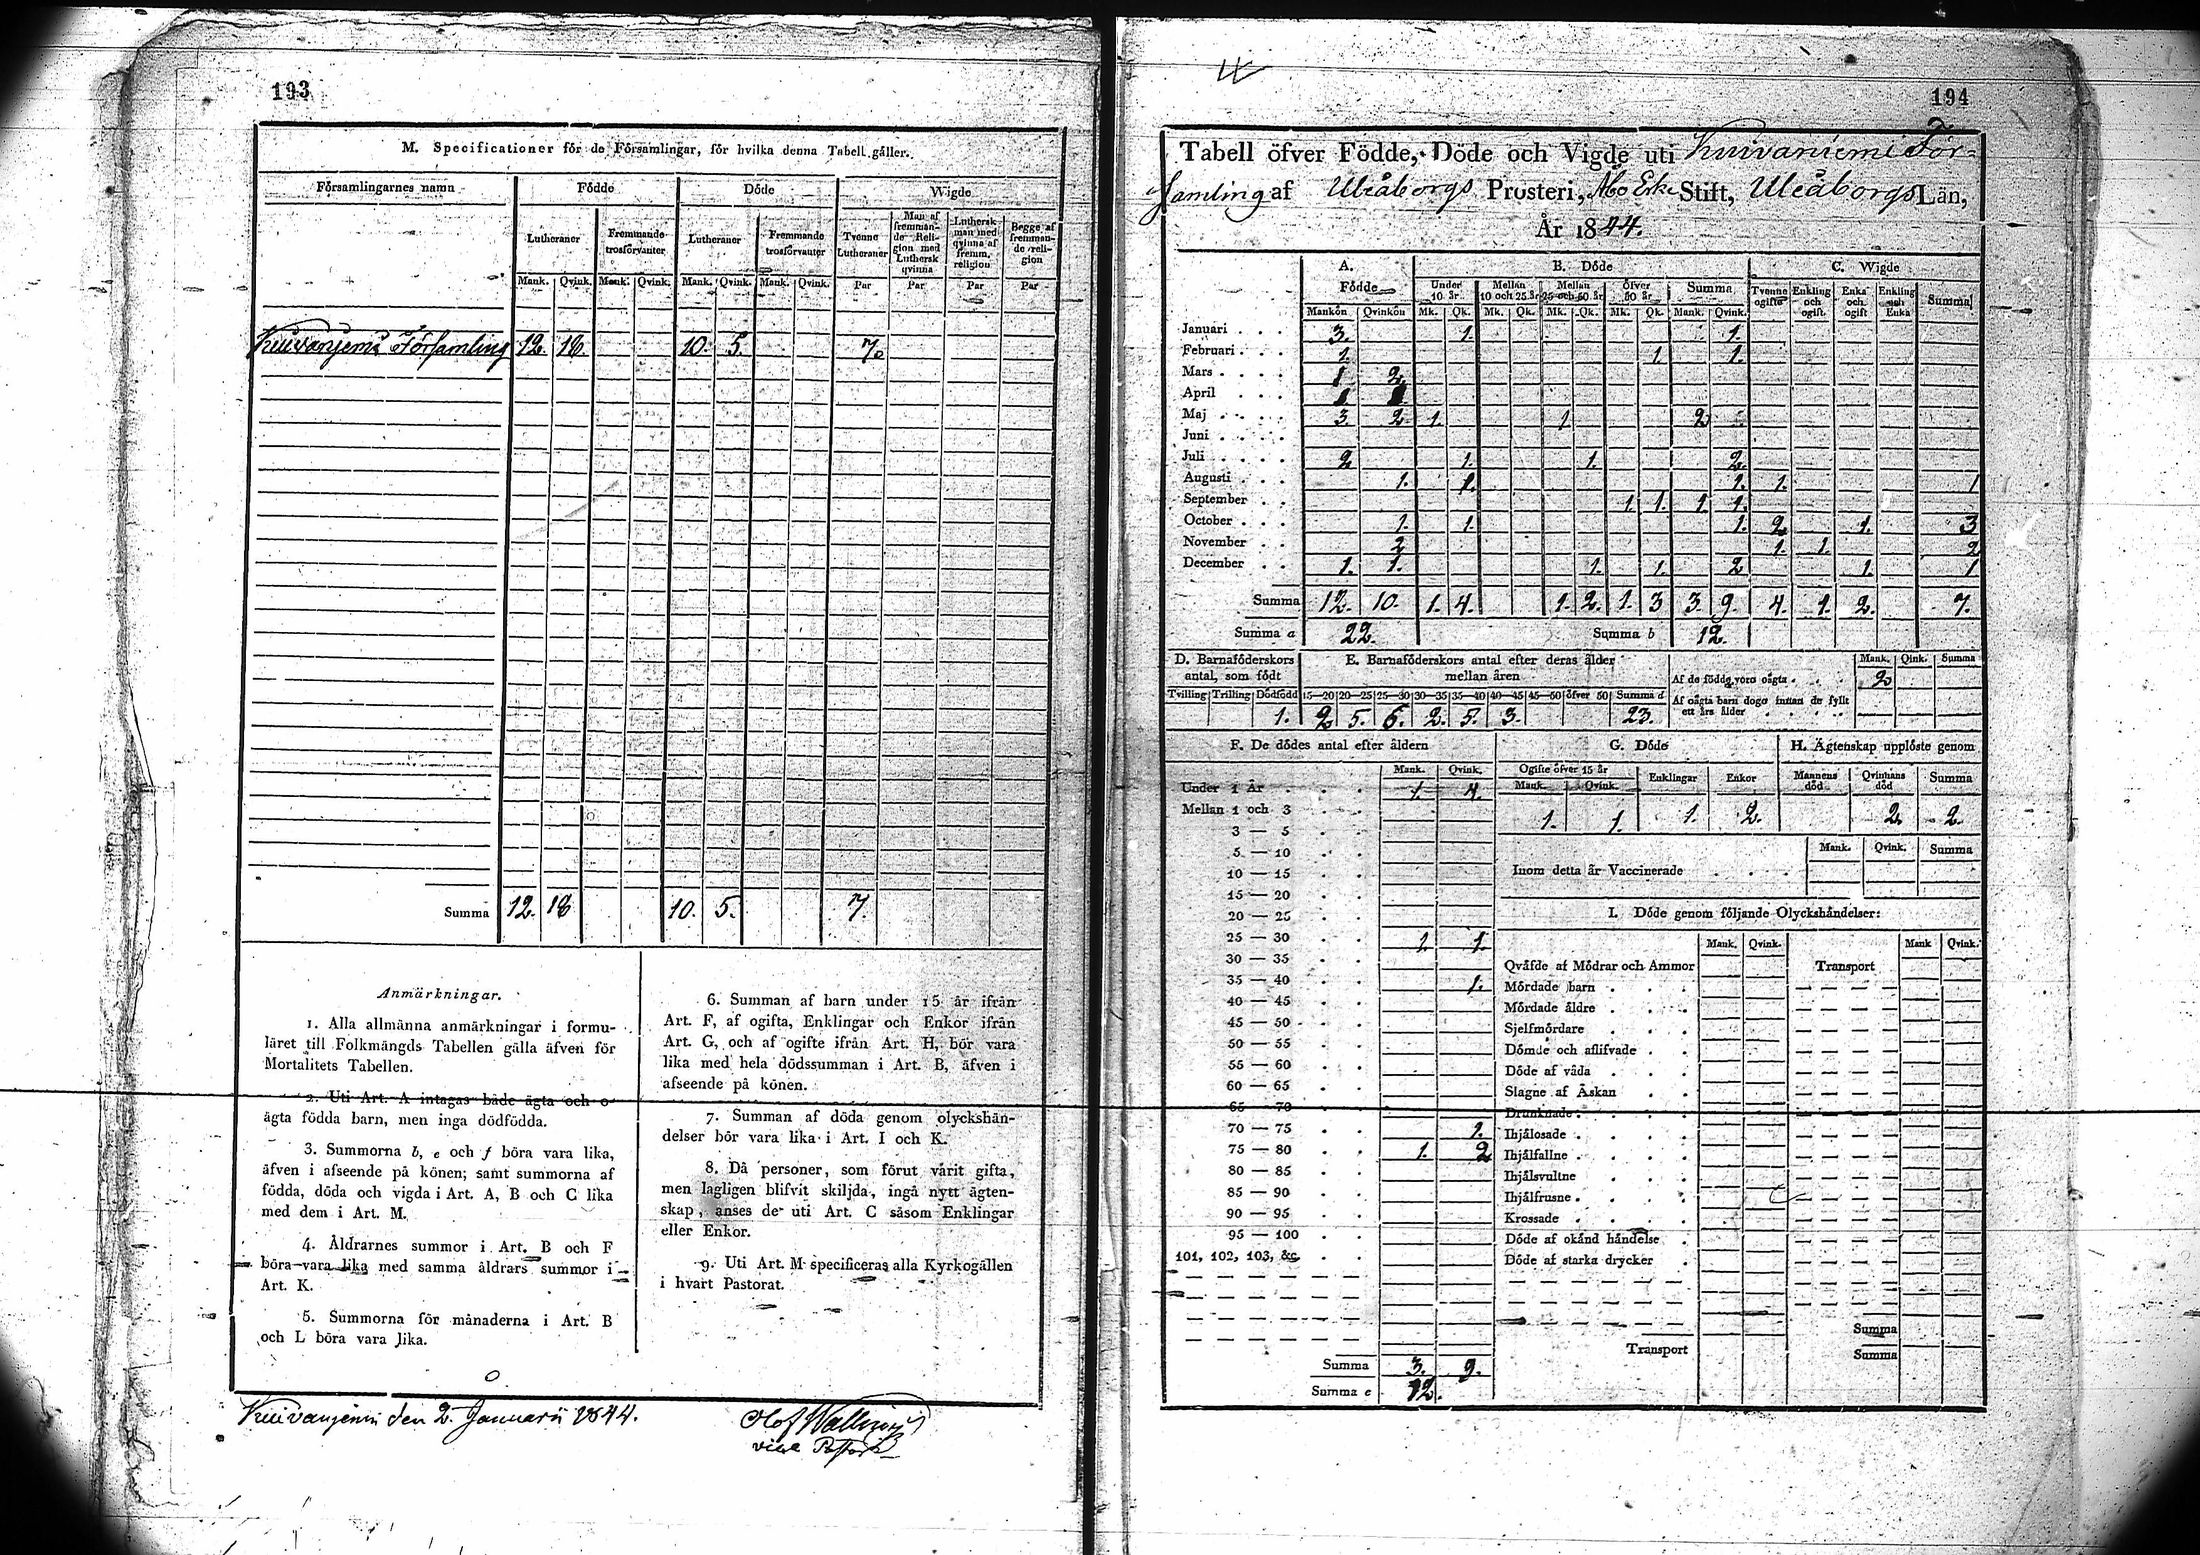 193
M. Specificationer för de Församlingar, för hvilka denna Tabell gäller.
Församlingarnes namn Födde Döde Wigde
Lutheraner Fremmande trosförvanter Lutheraner Fremmande trosförvanter Tvenne Lutheraner Man af fremmande Religion med Luthersk qvinna Luthersk man med qvinna af fremm. religion Begge af fremmande religion
Mank. Qvink. Mank. Qvink. Mank. Qvink. Mank. Qvink. Par Par Par Par
Kuivaniemi Församling 12. 18. 10. 5. 7.
Summa 12. 18 10. 5. 7.
Anmärkningar.
1. Alla allmänna anmärkningar i formu-
läret till Folkmängds Tabellen gälla äfven för
Mortalitets Tabellen.
2. Uti Art. A intagas både ägta och o-
ägta födda barn, men inga dödfödda.
3. Summorna b, e och f böra vara lika,
äfven i afseende på könen; samt summorna af
födda, döda och vigda i Art. A, B och C lika
med dem i Art. M.
4. Åldrarnes summor i Art. B och F
böra vara lika med samma åldrars summor i
Art. K.
5. Summorna för månaderna i Art. B
och L böra vara lika.
6. Summan af barn under 15 år ifrån
Art. F, af ogifta, Enklingar och Enkor ifrån
Art. G, och af ogifte ifrån Art. H, bör vara
lika med hela dödssumman i Art. B, äfven i
afseende på könen.
7. Summan af döda genom olyckshän-
delser bör vara lika i Art. I och K.
8. Då personer, som förut varit gifta,
men lagligen blifvit skiljda, ingå nytt ägten-
skap, anses de uti Art. C såsom Enklingar
eller Enkor.
9. Uti Art. M specificeras alla Kyrkogällen
i hvart Pastorat.
Kuivaniemi den 2. Januarii 1844.
Olof Wallenius
vice Pastor
194
Tabell öfver Födde, Döde och Vigde uti Kuivaniemi För-
samling af Uleåborgs Prosteri, Åbo Erke Stift, Uleåborgs Län,
År 1844.
A. B. Döde C. Wigde
Födde Under 10 år Mellan 10 och 25 år Mellan 25 och 50 år Öfver 50 år Summa Tvenne ogifte Enkling och ogift Enka och ogift Enkling och Enka Summa
Mankön Qvinkön Mk. Qk. Mk. Qk. Mk. Qk. Mk. Qk. Mank. Qvink.
Januari 3. 1. 1.
Februari 1. 1. 1.
Mars 1 2
April 1
Maj 3. 2 1. 1 2
Juni
Juli 2 1. 1. 2.
Augusti 1. 1. 1. 1. 1
September 1 1. 1 1.
October 1. 1. 1. 2 1. 3
November 2 1. 1. 2
December 1. 1. 1. 1. 2 1. 1
Summa 12. 10. 1. 4. 1. 2. 1. 3 3. 9. 4. 1. 2. 7.
Summa a 22. Summa b 12.
D. Barnaföderskors antal, som födt E. Barnaföderskors antal efter deras ålder mellan åren Mank. Qink. Summa
Tvilling Trilling Dödfödd 15—20 20—25 25—30 30—35 35—40 40—45 45—50 öfver 50 Summa d
1. 2 5. 6. 2. 5. 3. 23.
Af de födda voro oägta 2
Af oägta barn dogo innan de fyllt
ett års ålder
F. De dödes antal efter åldern
Mank. Qvink.
Under 1 År 1. 4.
Mellan 1 och 3
3 — 5
5 — 10
10 — 15
15 — 20
20 — 25
25 — 30 1. 1.
30 — 35
35 — 40 1.
40 — 45
45 — 50
50 — 55
55 — 60
60 — 65
65 — 70
70 — 75 1.
75 — 80 1. 2
80 — 85
85 — 90
90 — 95
95 — 100
101, 102, 103, &c.
Summa 3. 9.
Summa e 12.
G. Döde H. Ägtenskap upplöste genom
Ogifte öfver 15 år Enklingar Enkor Mannens död Qvinnans död Summa
Mank. Qvink.
1. 1. 1. 2. 2. 2.
Mank. Qvink. Summa
Inom detta år Vaccinerade
I. Döde genom följande Olyckshändelser:
Mank. Qvink. Mank Qvink.
Qväfde af Mödrar och Ammor Transport
Mördade barn
Mördade äldre
Sjelfmördare
Dömde och aflifvade
Döde af våda
Slagne af Åskan
Drunknade
Ihjälosade
Ihjälfallne
Ihjälsvultne
Ihjälfrusne
Krossade
Döde af okänd händelse
Döde af starka drycker
Summa
Transport Summa